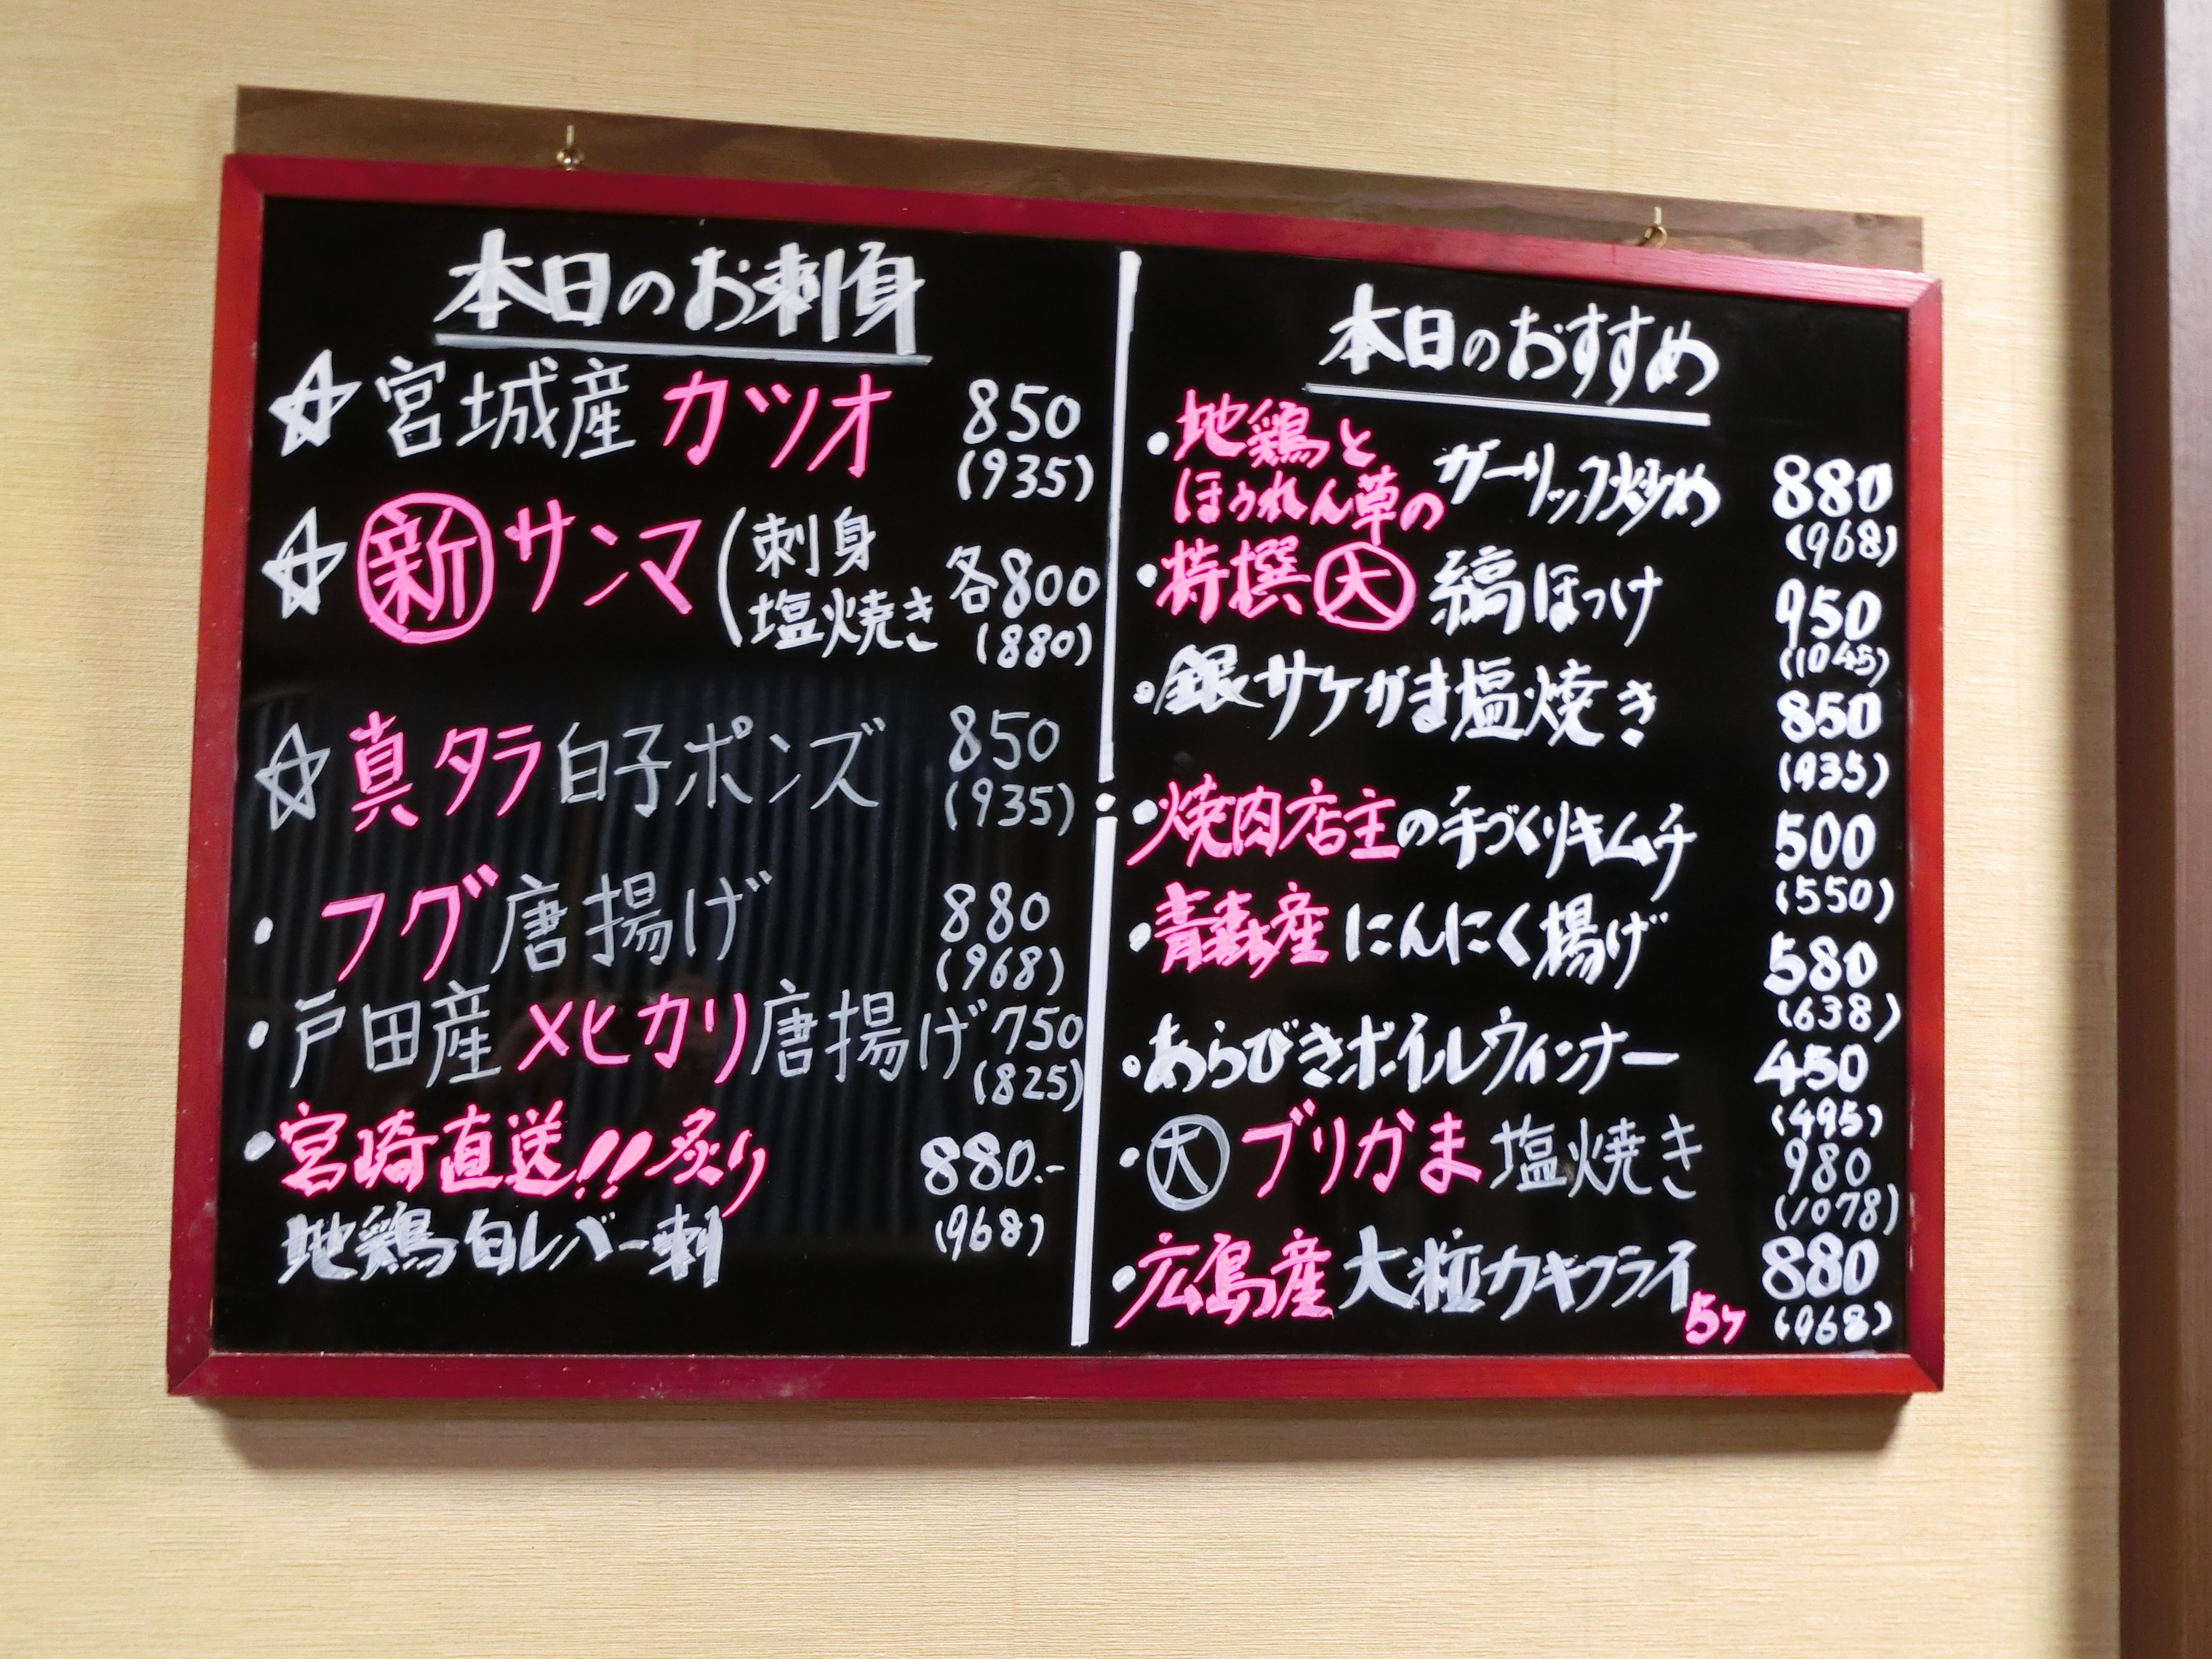 本日のお刺身
☆宮城産カツオ 850
(935)
☆新サンマ(刺身 塩焼き 各800
(880)
☆真タラ白子ポンズ 850
(935)
・フグ唐揚げ 880
(968)
・戸田産メヒカリ唐揚げ 750
(825)
・宮崎直送!!炙り 880.-
地鶏白レバー刺 (968)
本日のおすすめ
・地鶏と
ほうれん草のガーリック炒め 880
(968)
・特撰大縞ほっけ 950
(1045)
・銀サケかま塩焼き 850
(935)
・焼肉店主の手づくりキムチ 500
(550)
・青森産にんにく揚げ 580
(638)
・あらびきボイルウィンナー 450
(495)
・大ブリかま塩焼き 980
(1078)
・広島産大粒カキフライ5ケ 880
(968)